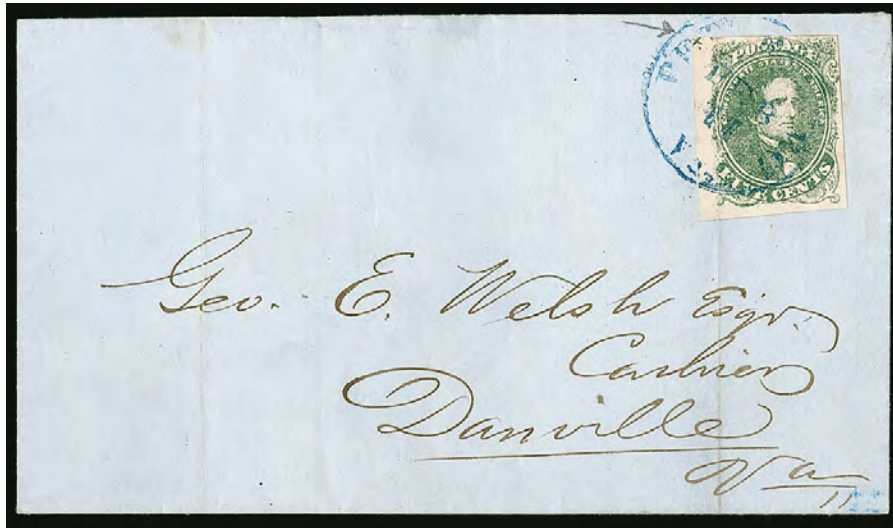 FIVE CENTS
Geo. E. Welsh Esqr.
Cashier
Danville
Va